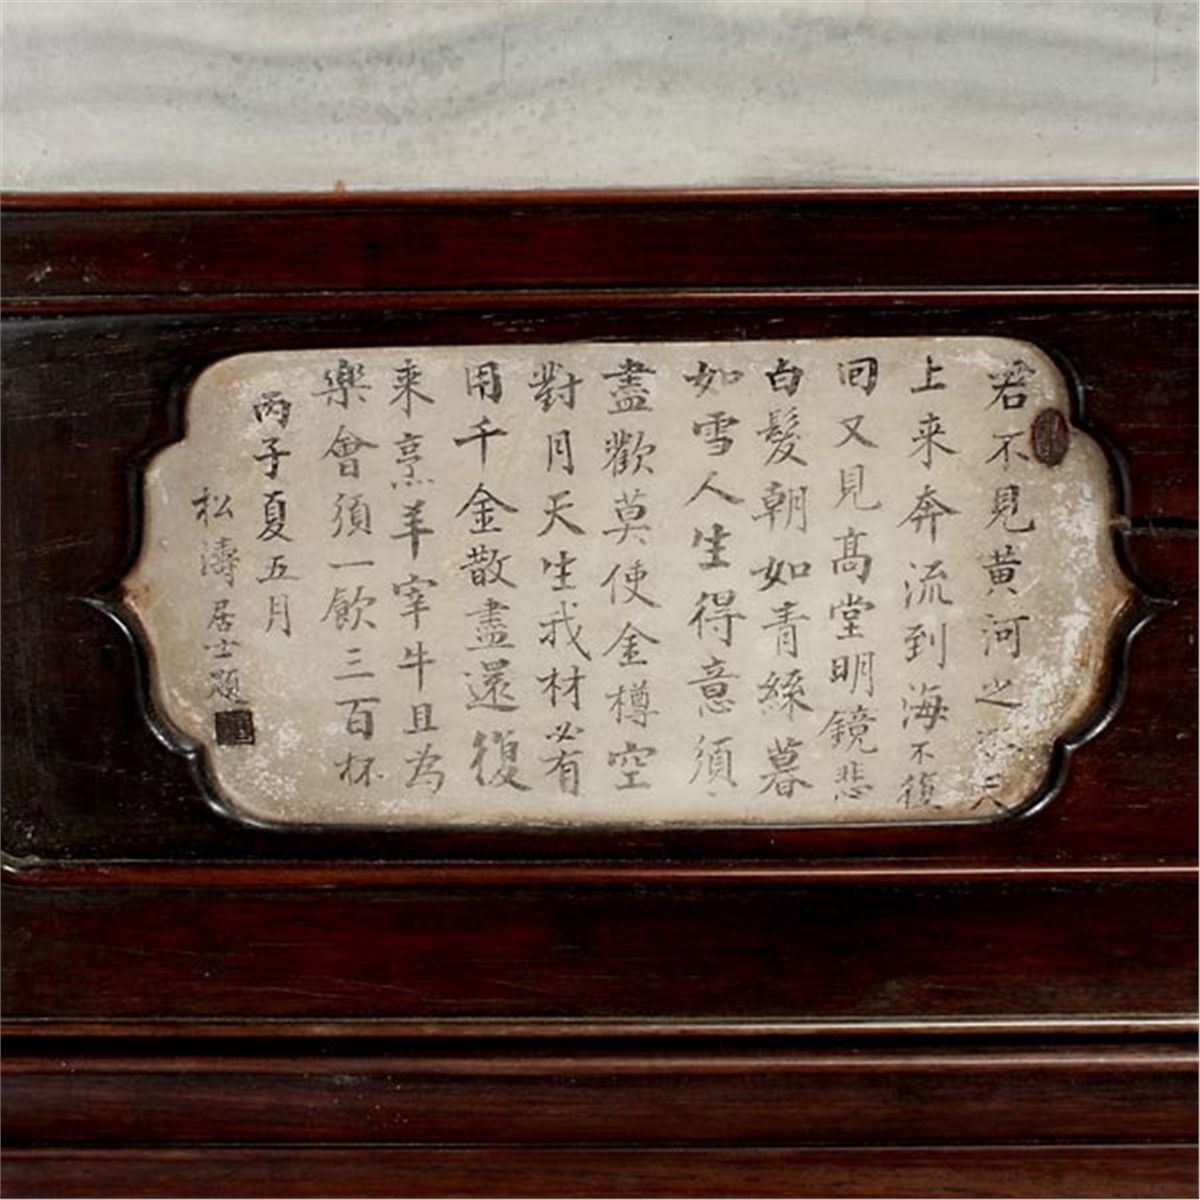 君不見黄河之水天
上来奔流到海不復
回又見高堂明鏡悲
白髮朝如青絲暮
如雪人生得意須
盡歡莫使金樽空
對月天生我材必有
用千金散盡還復
来烹羊宰牛且為
樂會須一飲三百杯
丙子夏五月
松濤居士題